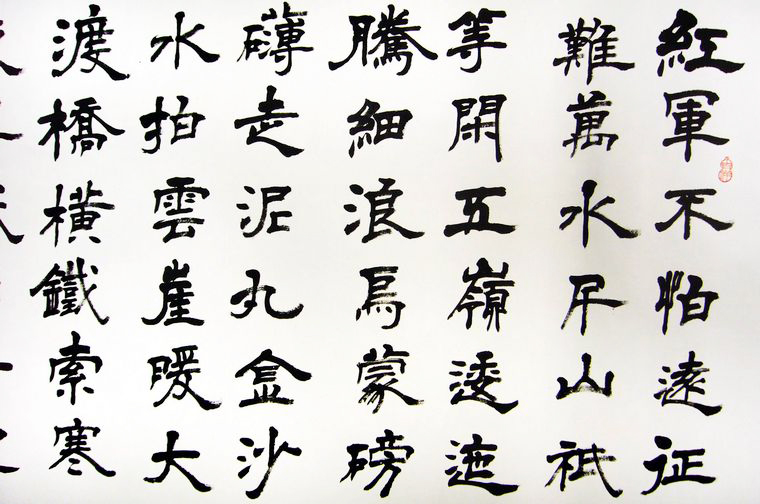 紅軍不怕遠征
難萬水千山祇
等閑五嶺逶迤
騰細浪烏蒙磅
礴走泥丸金沙
水拍雲崖暖大
渡橋橫鐵索寒